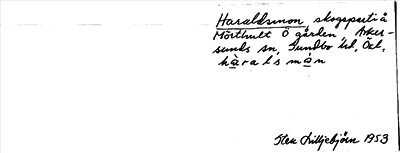 Haraldsmon, skogsparti å
Mörthult Ö gården, Asker-
sunds sn, Sundbo hd, Ögl.
hàralsmán
Sten Lilljebjörn 1953